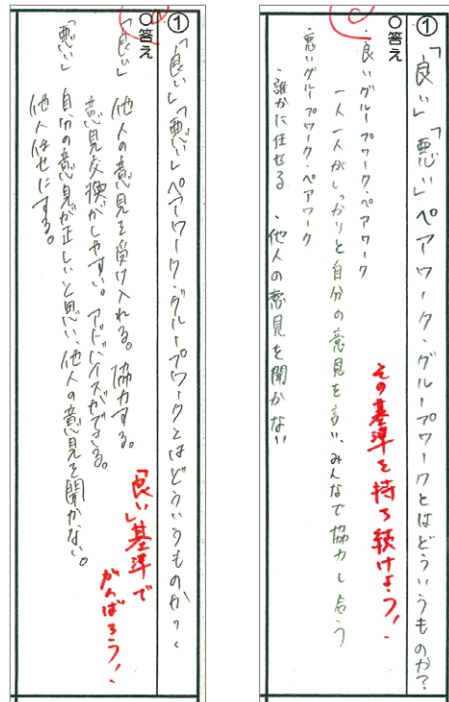 ①「良い」「悪い」ペアワーク・グループワークとはどういうものか？
○答え
・良いグループワーク・ペアワーク
一人一人がしっかりと自分の意見を言い、みんなで協力し合う
・悪いグループワーク・ペアワーク
・誰かに任せる　・他人の意見を聞かない
その基準を持ち続けよう！
①「良い」「悪い」ペアワーク・グループワークとはどういうものか？
○答え
「良い」　他人の意見を受け入れる。協力する。
意見交換がしやすい。アドバイスができる。
「悪い」　自分の意見が正しいと思い、他人の意見を聞かない。
他人任せにする。
「良い」基準で
がんばろう！